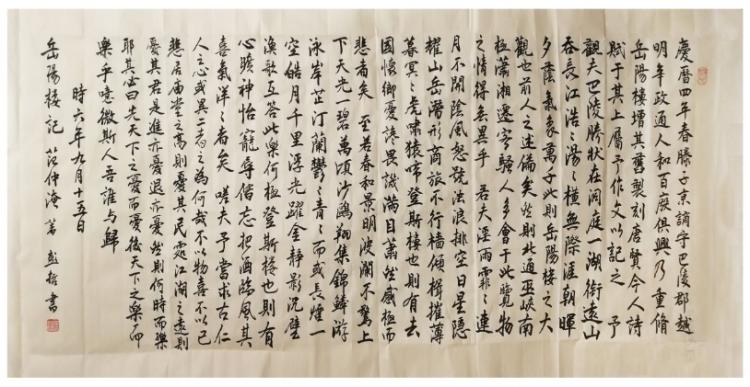 慶曆四年春滕子京謫守巴陵郡越
明年政通人和百廢俱興乃重脩
岳陽樓增其舊製刻唐賢今人詩
賦于其上屬予作文以記之 予
觀夫巴陵勝狀在洞庭一湖銜遠山
吞長江浩〻湯〻橫無際涯朝暉
夕蔭氣象萬千此則岳陽樓之大
觀也前人之述備矣然則北通巫峽南
極瀟湘遷客騷人多會于此覽物
之情得無異乎 若夫淫雨霏〻連
月不開陰風怒號濁浪排空日星隱
耀山岳潛形商旅不行檣傾楫摧薄
暮冥〻虎嘯猿啼登斯樓也則有去
國懷鄉憂讒畏譏滿目蕭然感極而
悲者矣 至若春和景明波瀾不驚上
下天光一碧萬頃沙鷗翔集錦鱗游
泳岸芷汀蘭鬱〻青〻而或長煙一
空皓月千里浮光躍金靜影沉璧
漁歌互答此樂何極登斯樓也則有
心曠神怡寵辱偕忘把酒臨風其
喜氣洋〻者矣 嗟夫予嘗求古仁
人之心或異二者之為何哉不以物喜不以己
悲居廟堂之高則憂其民處江湖之遠則
憂其君是進亦憂退亦憂然則何時而樂
耶其必曰先天下之憂而憂後天下之樂而
樂乎噫微斯人吾誰與歸
時六年九月十五日
岳陽樓記 范仲淹著 書